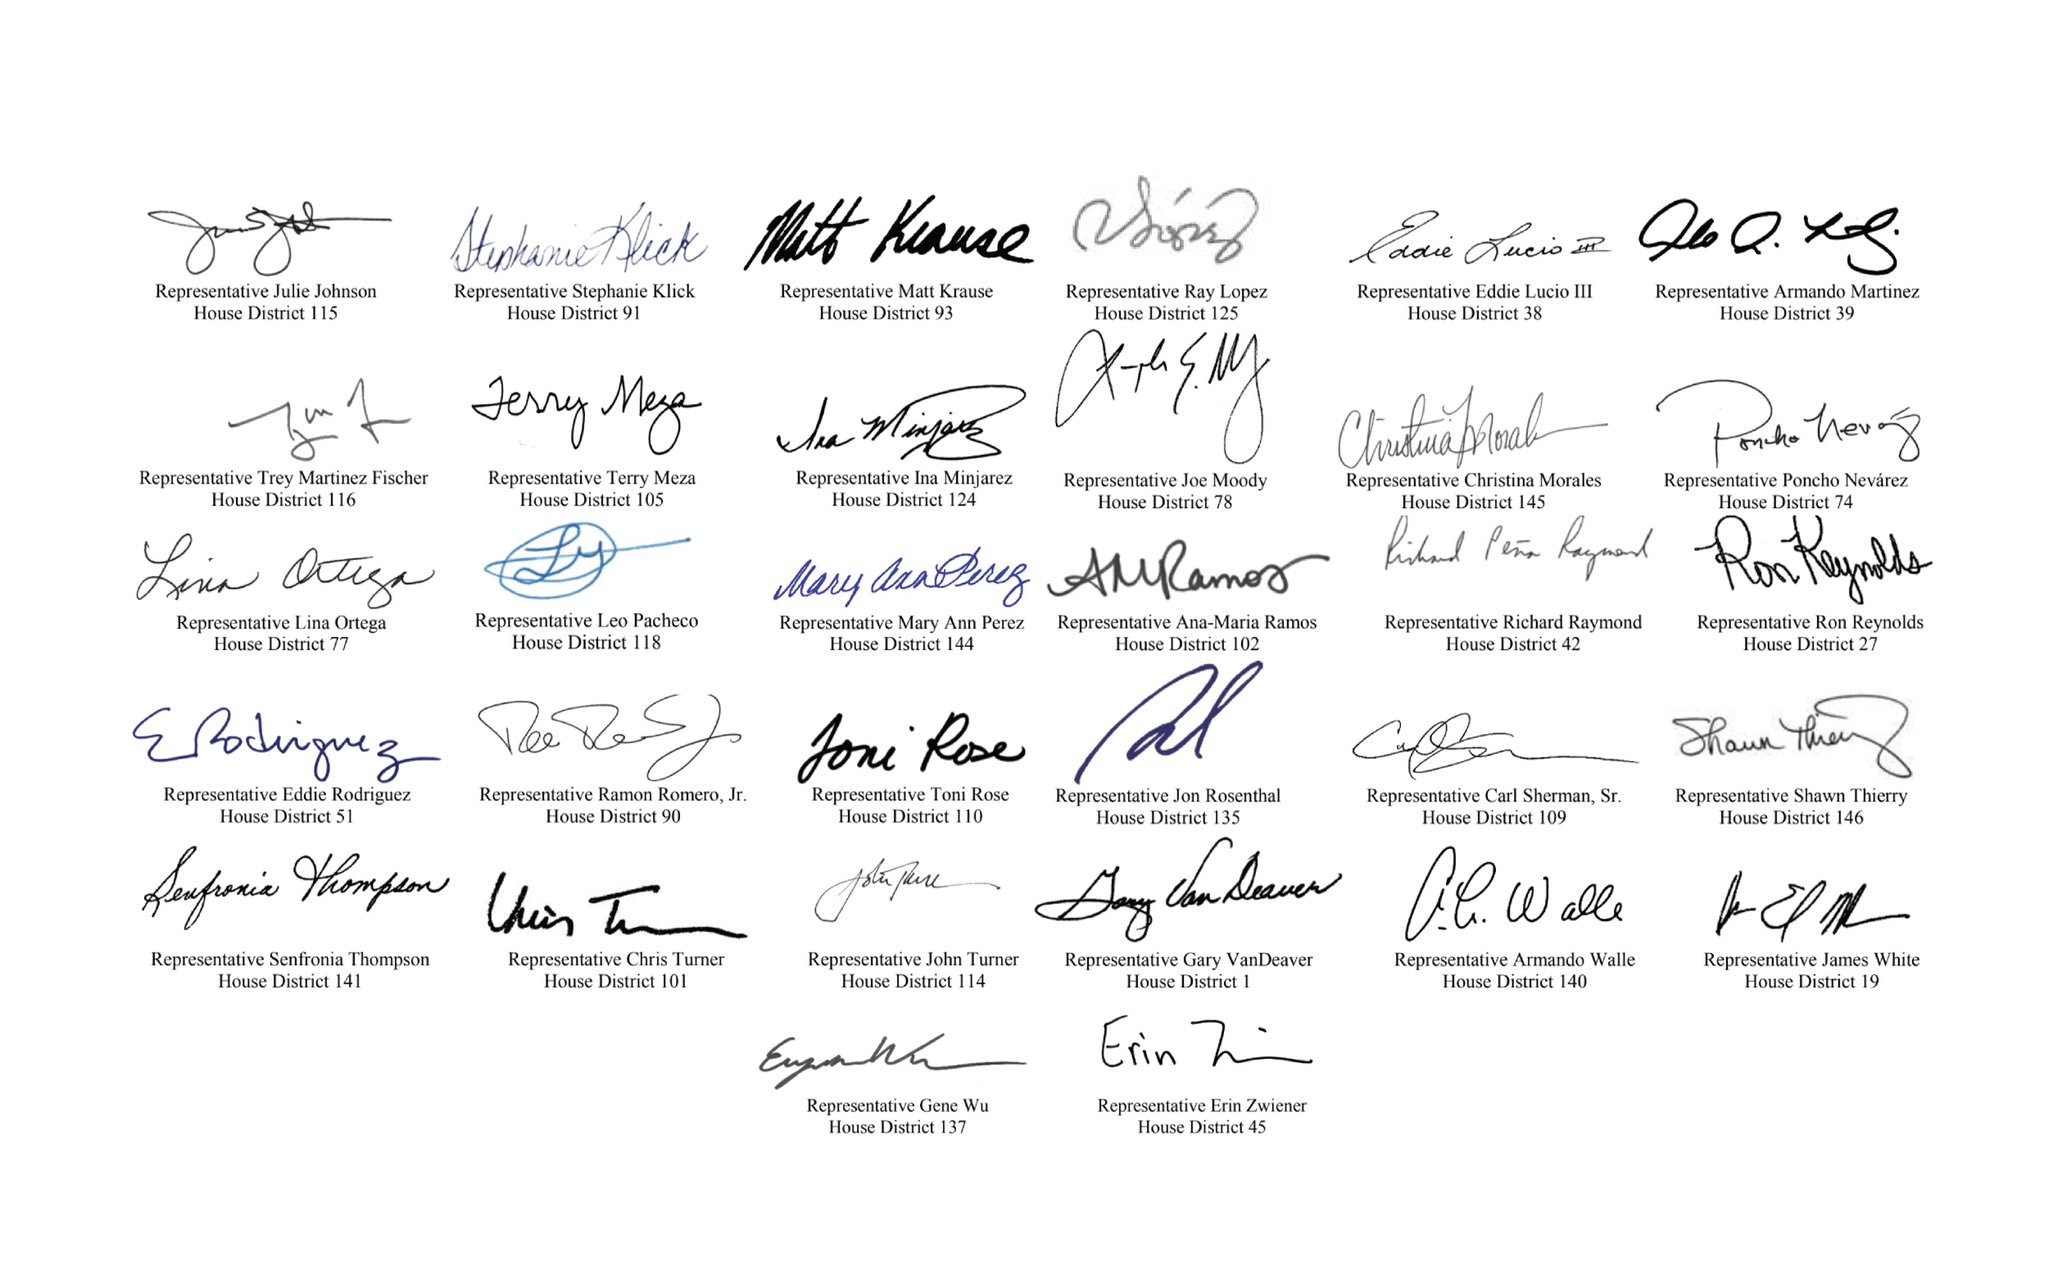 Stephanie Klick
Matt Krause
Eddie Lucio III
Representative Julie Johnson
House District 115
Representative Stephanie Klick
House District 91
Representative Matt Krause
House District 93
Representative Ray Lopez
House District 125
Representative Eddie Lucio III
House District 38
Representative Armando Martinez
House District 39
Terry Meza
Ina Minjarez
Christina Morales
Poncho Nevárez
Representative Trey Martinez Fischer
House District 116
Representative Terry Meza
House District 105
Representative Ina Minjarez
House District 124
Representative Joe Moody
House District 78
Representative Christina Morales
House District 145
Representative Poncho Nevárez
House District 74
Lina Ortega
Mary Ann Perez
AMRamos
Richard Peña Raymond
Ron Reynolds
Representative Lina Ortega
House District 77
Representative Leo Pacheco
House District 118
Representative Mary Ann Perez
House District 144
Representative Ana-Maria Ramos
House District 102
Representative Richard Raymond
House District 42
Representative Ron Reynolds
House District 27
E Rodriguez
Toni Rose
Shawn Thierry
Representative Eddie Rodriguez
House District 51
Representative Ramon Romero, Jr.
House District 90
Representative Toni Rose
House District 110
Representative Jon Rosenthal
House District 135
Representative Carl Sherman, Sr.
House District 109
Representative Shawn Thierry
House District 146
Senfronia Thompson
Chris
Gary VanDeaver
A.C. Walle
Representative Senfronia Thompson
House District 141
Representative Chris Turner
House District 101
Representative John Turner
House District 114
Representative Gary VanDeaver
House District 1
Representative Armando Walle
House District 140
Representative James White
House District 19
Erin
Representative Gene Wu
House District 137
Representative Erin Zwiener
House District 45